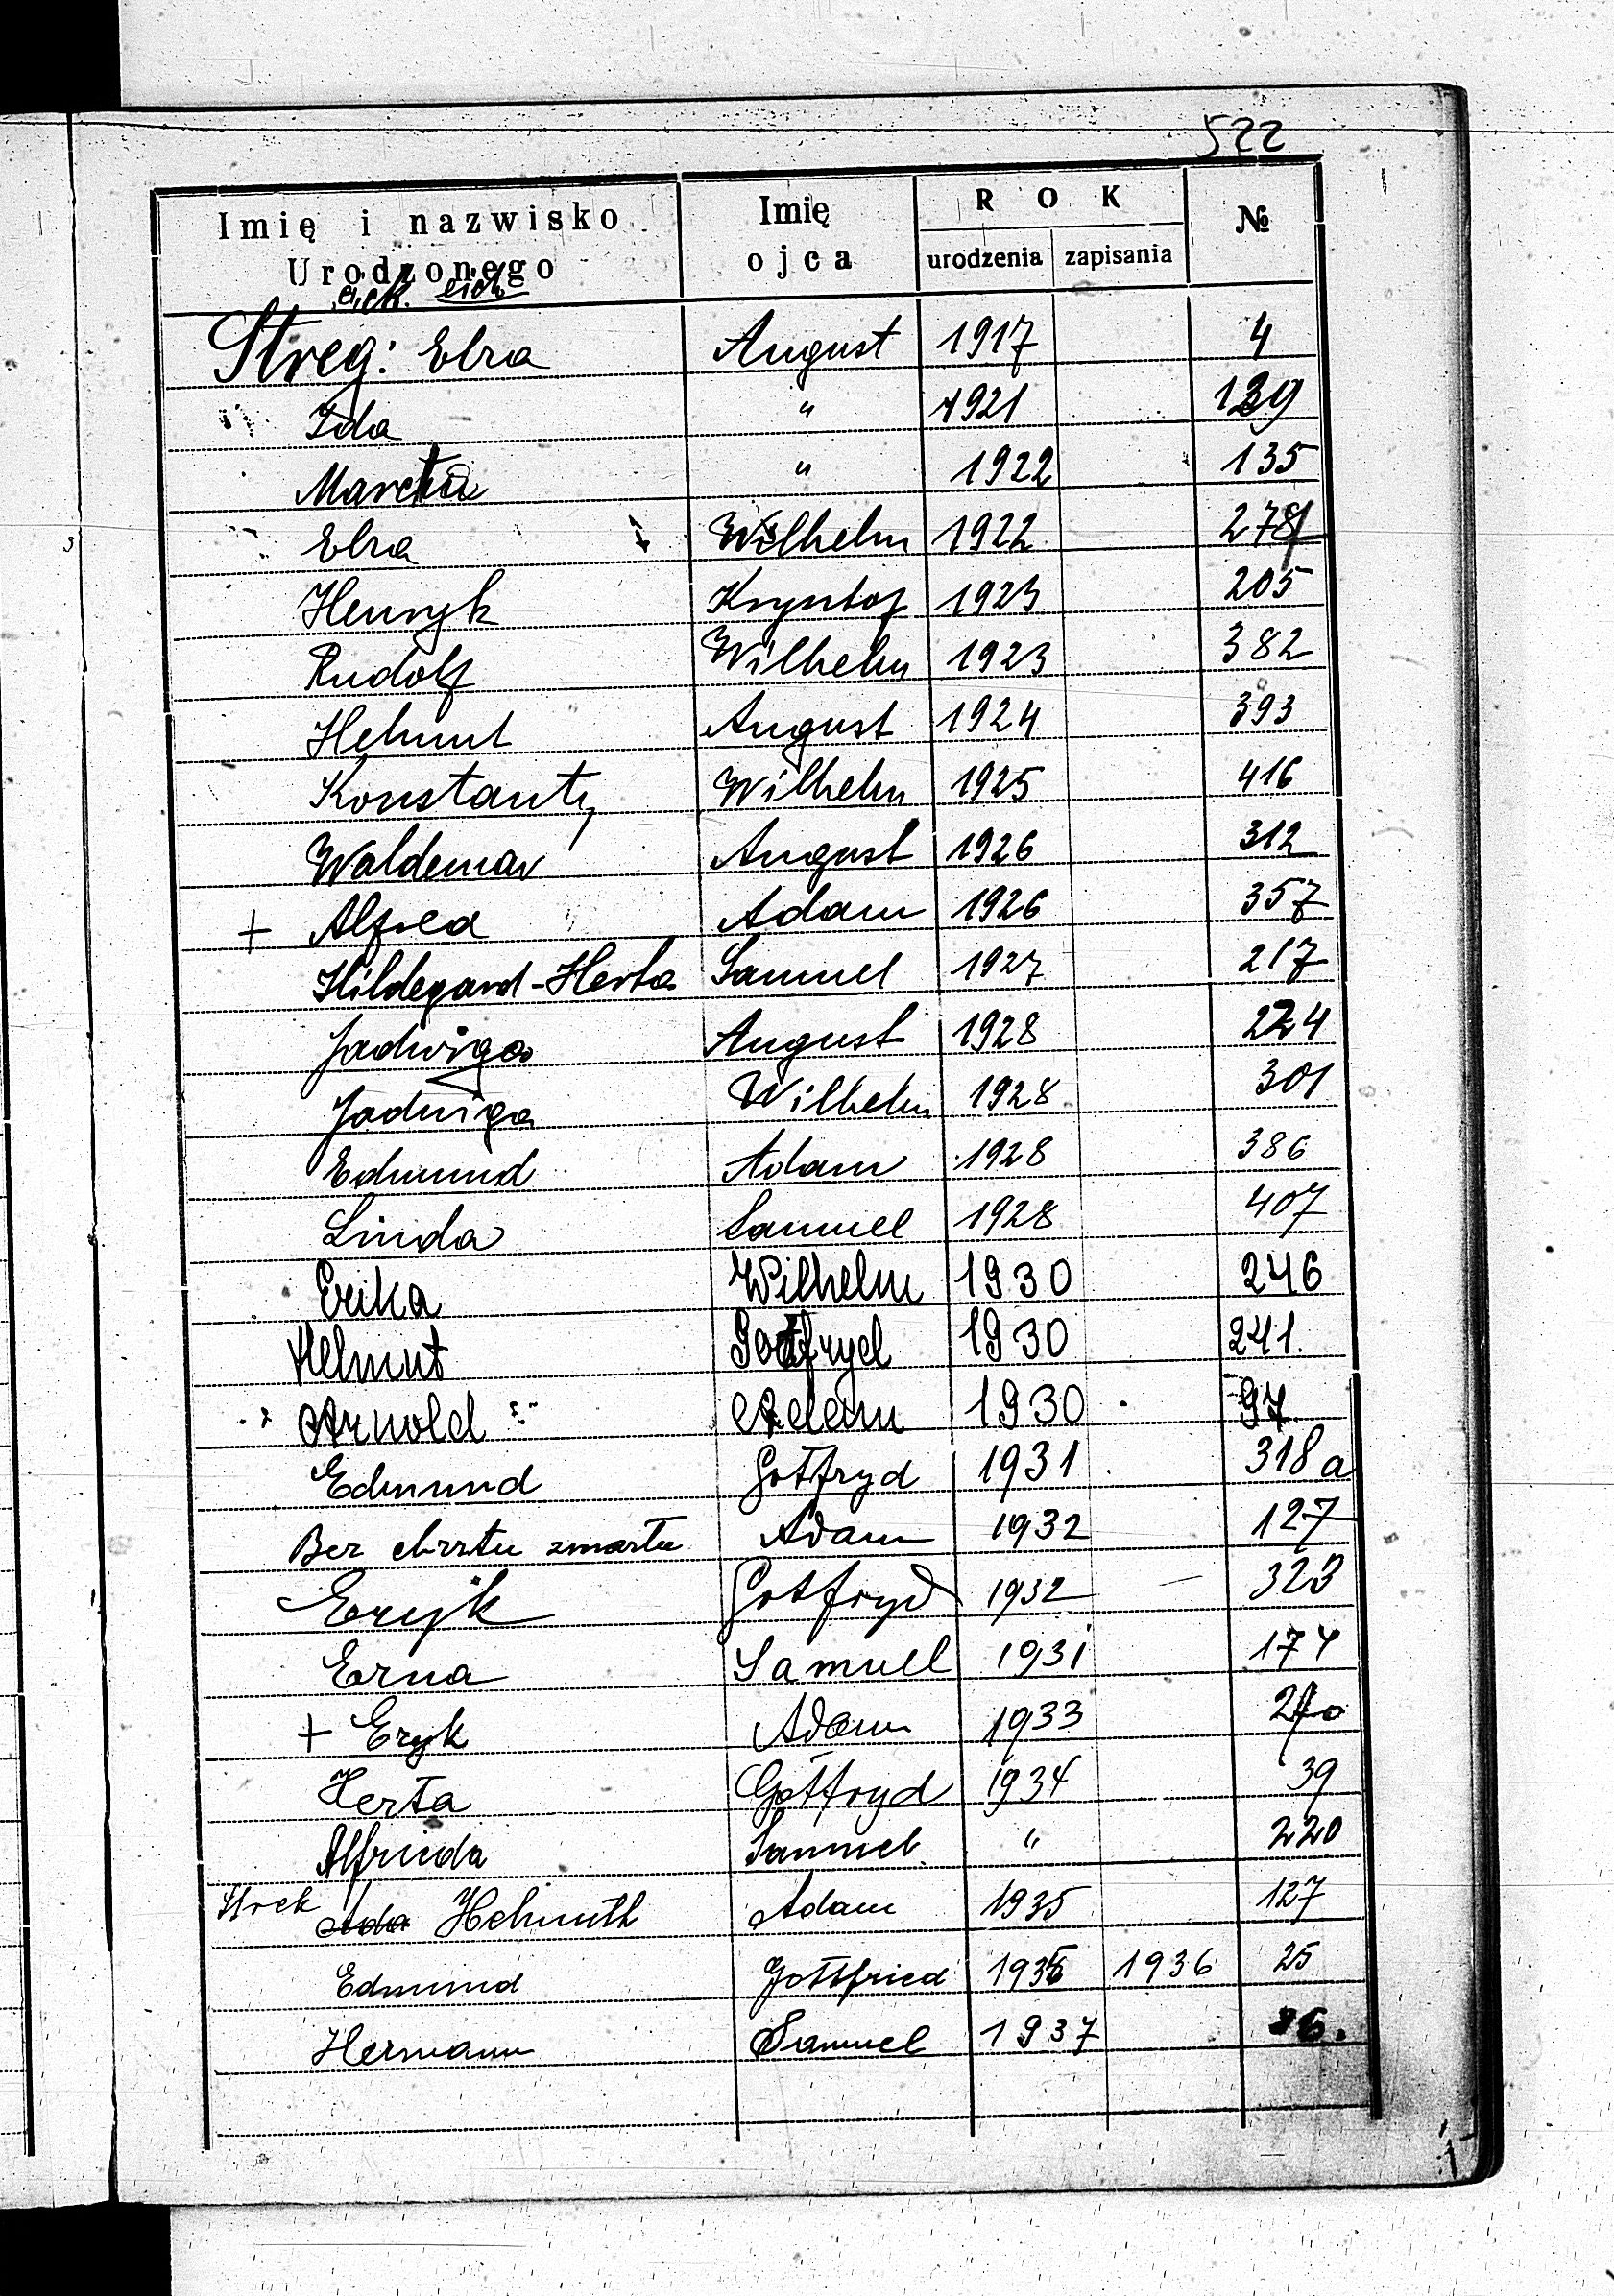 522
Imię i nazwisko Urodzonego Imię ojca ROK urodzenia zapisania №
eck. eich
Streg: Elza August 1917 4
Ida " 1921 139
Marta " 1922 135
Elza Wilhelm 1922 278
Henryk Krysztof 1923 205
Rudolf Wilhelm 1923 382
Helmut August 1924 393
Konstanty Wilhelm 1925 416
Waldemar August 1926 312
+ Alfred Adam 1926 357
Hildegard-Herta Samuel 1927 217
Jadwiga August 1928 224
Jadwiga Wilhelm 1928 301
Edmund Adam 1928 386
Linda Samuel 1928 407
Erika Wilhelm 1930 246
Helmut Gotfryd 1930 241.
Arnold Adam 1930 97
Edmund Gotfryd 1931 318a
Bez chrztu zmarłe Adam 1932 127
Eryk Gotfryd 1932 323
Erna Samuel 1931 174
+ Eryk Adam 1933 270
Herta Gotfryd 1934 39
Alfrieda Samuel " 220
Strek Ada Helmuth Adam 1935 127
Edmund Gottfried 1935 1936 25
Hermann Samuel 1937 36.